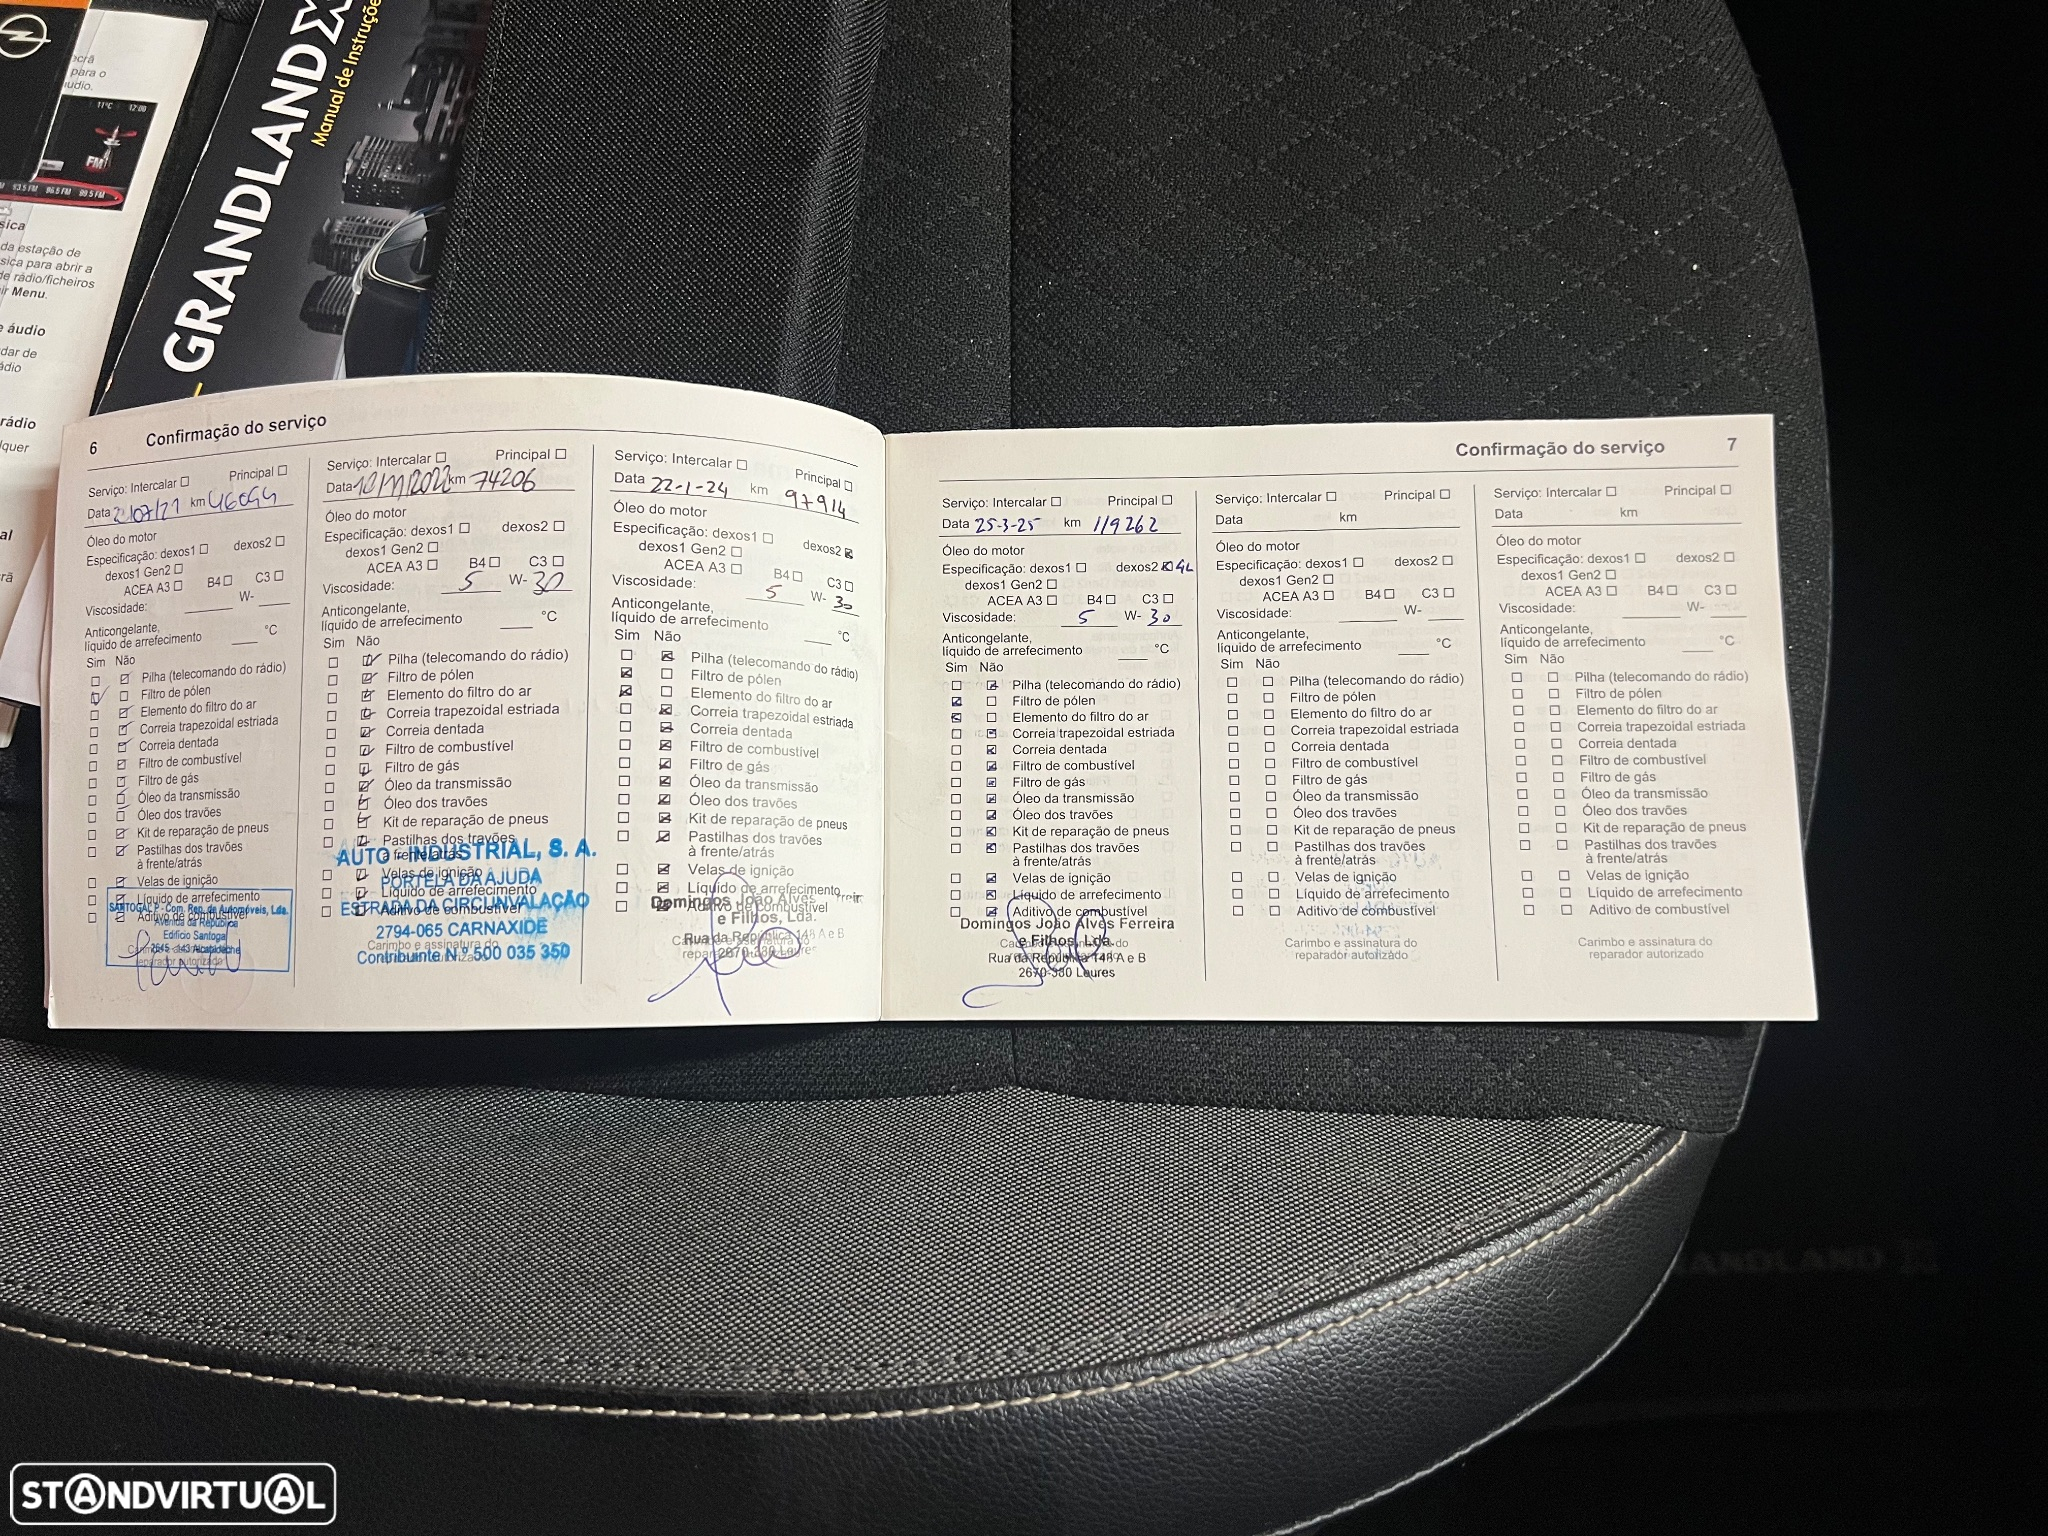 ecrã
para o
áudio.
11°C 12:00
FM
93.5 FM 96.5 FM 99.5 FM
sica
da estação de
sica para abrir a
de rádio/ficheiros
ir Menu.
e áudio
dar de
ádio
rádio
lquer
al
crã
GRANDLAND X
Manual de Instruções
6 Confirmação do serviço
Serviço: Intercalar ☐ Principal ☐
Data 2/07/21 km
Óleo do motor
Especificação: dexos1 ☐ dexos2 ☐
dexos1 Gen2 ☐
ACEA A3 ☐ B4 ☐ C3 ☐
Viscosidade: ____ W- ____
Anticongelante,
líquido de arrefecimento ____ °C
Sim Não
Pilha (telecomando do rádio)
Filtro de pólen
Elemento do filtro do ar
Correia trapezoidal estriada
Correia dentada
Filtro de combustível
Filtro de gás
Óleo da transmissão
Óleo dos travões
Kit de reparação de pneus
Pastilhas dos travões
à frente/atrás
Velas de ignição
Líquido de arrefecimento
Aditivo de combustível
SANTOGAL P - Com. Rep. de Automóveis, Lda.
Avenida da República
Edifício Santogal
2645 - 143 Alcabideche
reparador autorizado
Serviço: Intercalar ☐ Principal ☐
Data km 74206
Óleo do motor
Especificação: dexos1 ☐ dexos2 ☐
dexos1 Gen2 ☐
ACEA A3 ☐ B4 ☐ C3 ☐
Viscosidade: 5 W- 30
Anticongelante,
líquido de arrefecimento ____ °C
Sim Não
Pilha (telecomando do rádio)
Filtro de pólen
Elemento do filtro do ar
Correia trapezoidal estriada
Correia dentada
Filtro de combustível
Filtro de gás
Óleo da transmissão
Óleo dos travões
Kit de reparação de pneus
Pastilhas dos travões
à frente/atrás
Velas de ignição
Líquido de arrefecimento
Aditivo de combustível
AUTO - INDUSTRIAL, S. A.
PORTELA DA AJUDA
ESTRADA DA CIRCUNVALAÇÃO
2794-065 CARNAXIDE
Contribuinte N.º 500 035 350
Carimbo e assinatura do
Serviço: Intercalar ☐ Principal ☐
Data 22-1-24 km 97914
Óleo do motor
Especificação: dexos1 ☐ dexos2 ☒
dexos1 Gen2 ☐
ACEA A3 ☐ B4 ☐ C3 ☐
Viscosidade: 5 W- 30
Anticongelante,
líquido de arrefecimento ____ °C
Sim Não
Pilha (telecomando do rádio)
Filtro de pólen
Elemento do filtro do ar
Correia trapezoidal estriada
Correia dentada
Filtro de combustível
Filtro de gás
Óleo da transmissão
Óleo dos travões
Kit de reparação de pneus
Pastilhas dos travões
à frente/atrás
Velas de ignição
Líquido de arrefecimento
Aditivo de combustível
Domingos João Alves
e Filhos, Lda.
Rua da República 148 A e B
2670-380 Loures
Confirmação do serviço 7
Serviço: Intercalar ☐ Principal ☐
Data 25-3-25 km 119262
Óleo do motor
Especificação: dexos1 ☐ dexos2 ☒ 4L
dexos1 Gen2 ☐
ACEA A3 ☐ B4 ☐ C3 ☐
Viscosidade: 5 W- 30
Anticongelante,
líquido de arrefecimento ____ °C
Sim Não
Pilha (telecomando do rádio)
Filtro de pólen
Elemento do filtro do ar
Correia trapezoidal estriada
Correia dentada
Filtro de combustível
Filtro de gás
Óleo da transmissão
Óleo dos travões
Kit de reparação de pneus
Pastilhas dos travões
à frente/atrás
Velas de ignição
Líquido de arrefecimento
Aditivo de combustível
Domingos João Alves Ferreira
e Filhos, Lda.
Rua da República 148 A e B
2670-380 Loures
Serviço: Intercalar ☐ Principal ☐
Data km
Óleo do motor
Especificação: dexos1 ☐ dexos2 ☐
dexos1 Gen2 ☐
ACEA A3 ☐ B4 ☐ C3 ☐
Viscosidade: ____ W- ____
Anticongelante,
líquido de arrefecimento ____ °C
Sim Não
Pilha (telecomando do rádio)
Filtro de pólen
Elemento do filtro do ar
Correia trapezoidal estriada
Correia dentada
Filtro de combustível
Filtro de gás
Óleo da transmissão
Óleo dos travões
Kit de reparação de pneus
Pastilhas dos travões
à frente/atrás
Velas de ignição
Líquido de arrefecimento
Aditivo de combustível
Carimbo e assinatura do
reparador autorizado
Serviço: Intercalar ☐ Principal ☐
Data km
Óleo do motor
Especificação: dexos1 ☐ dexos2 ☐
dexos1 Gen2 ☐
ACEA A3 ☐ B4 ☐ C3 ☐
Viscosidade: ____ W- ____
Anticongelante,
líquido de arrefecimento ____ °C
Sim Não
Pilha (telecomando do rádio)
Filtro de pólen
Elemento do filtro do ar
Correia trapezoidal estriada
Correia dentada
Filtro de combustível
Filtro de gás
Óleo da transmissão
Óleo dos travões
Kit de reparação de pneus
Pastilhas dos travões
à frente/atrás
Velas de ignição
Líquido de arrefecimento
Aditivo de combustível
Carimbo e assinatura do
reparador autorizado
STANDVIRTUAL